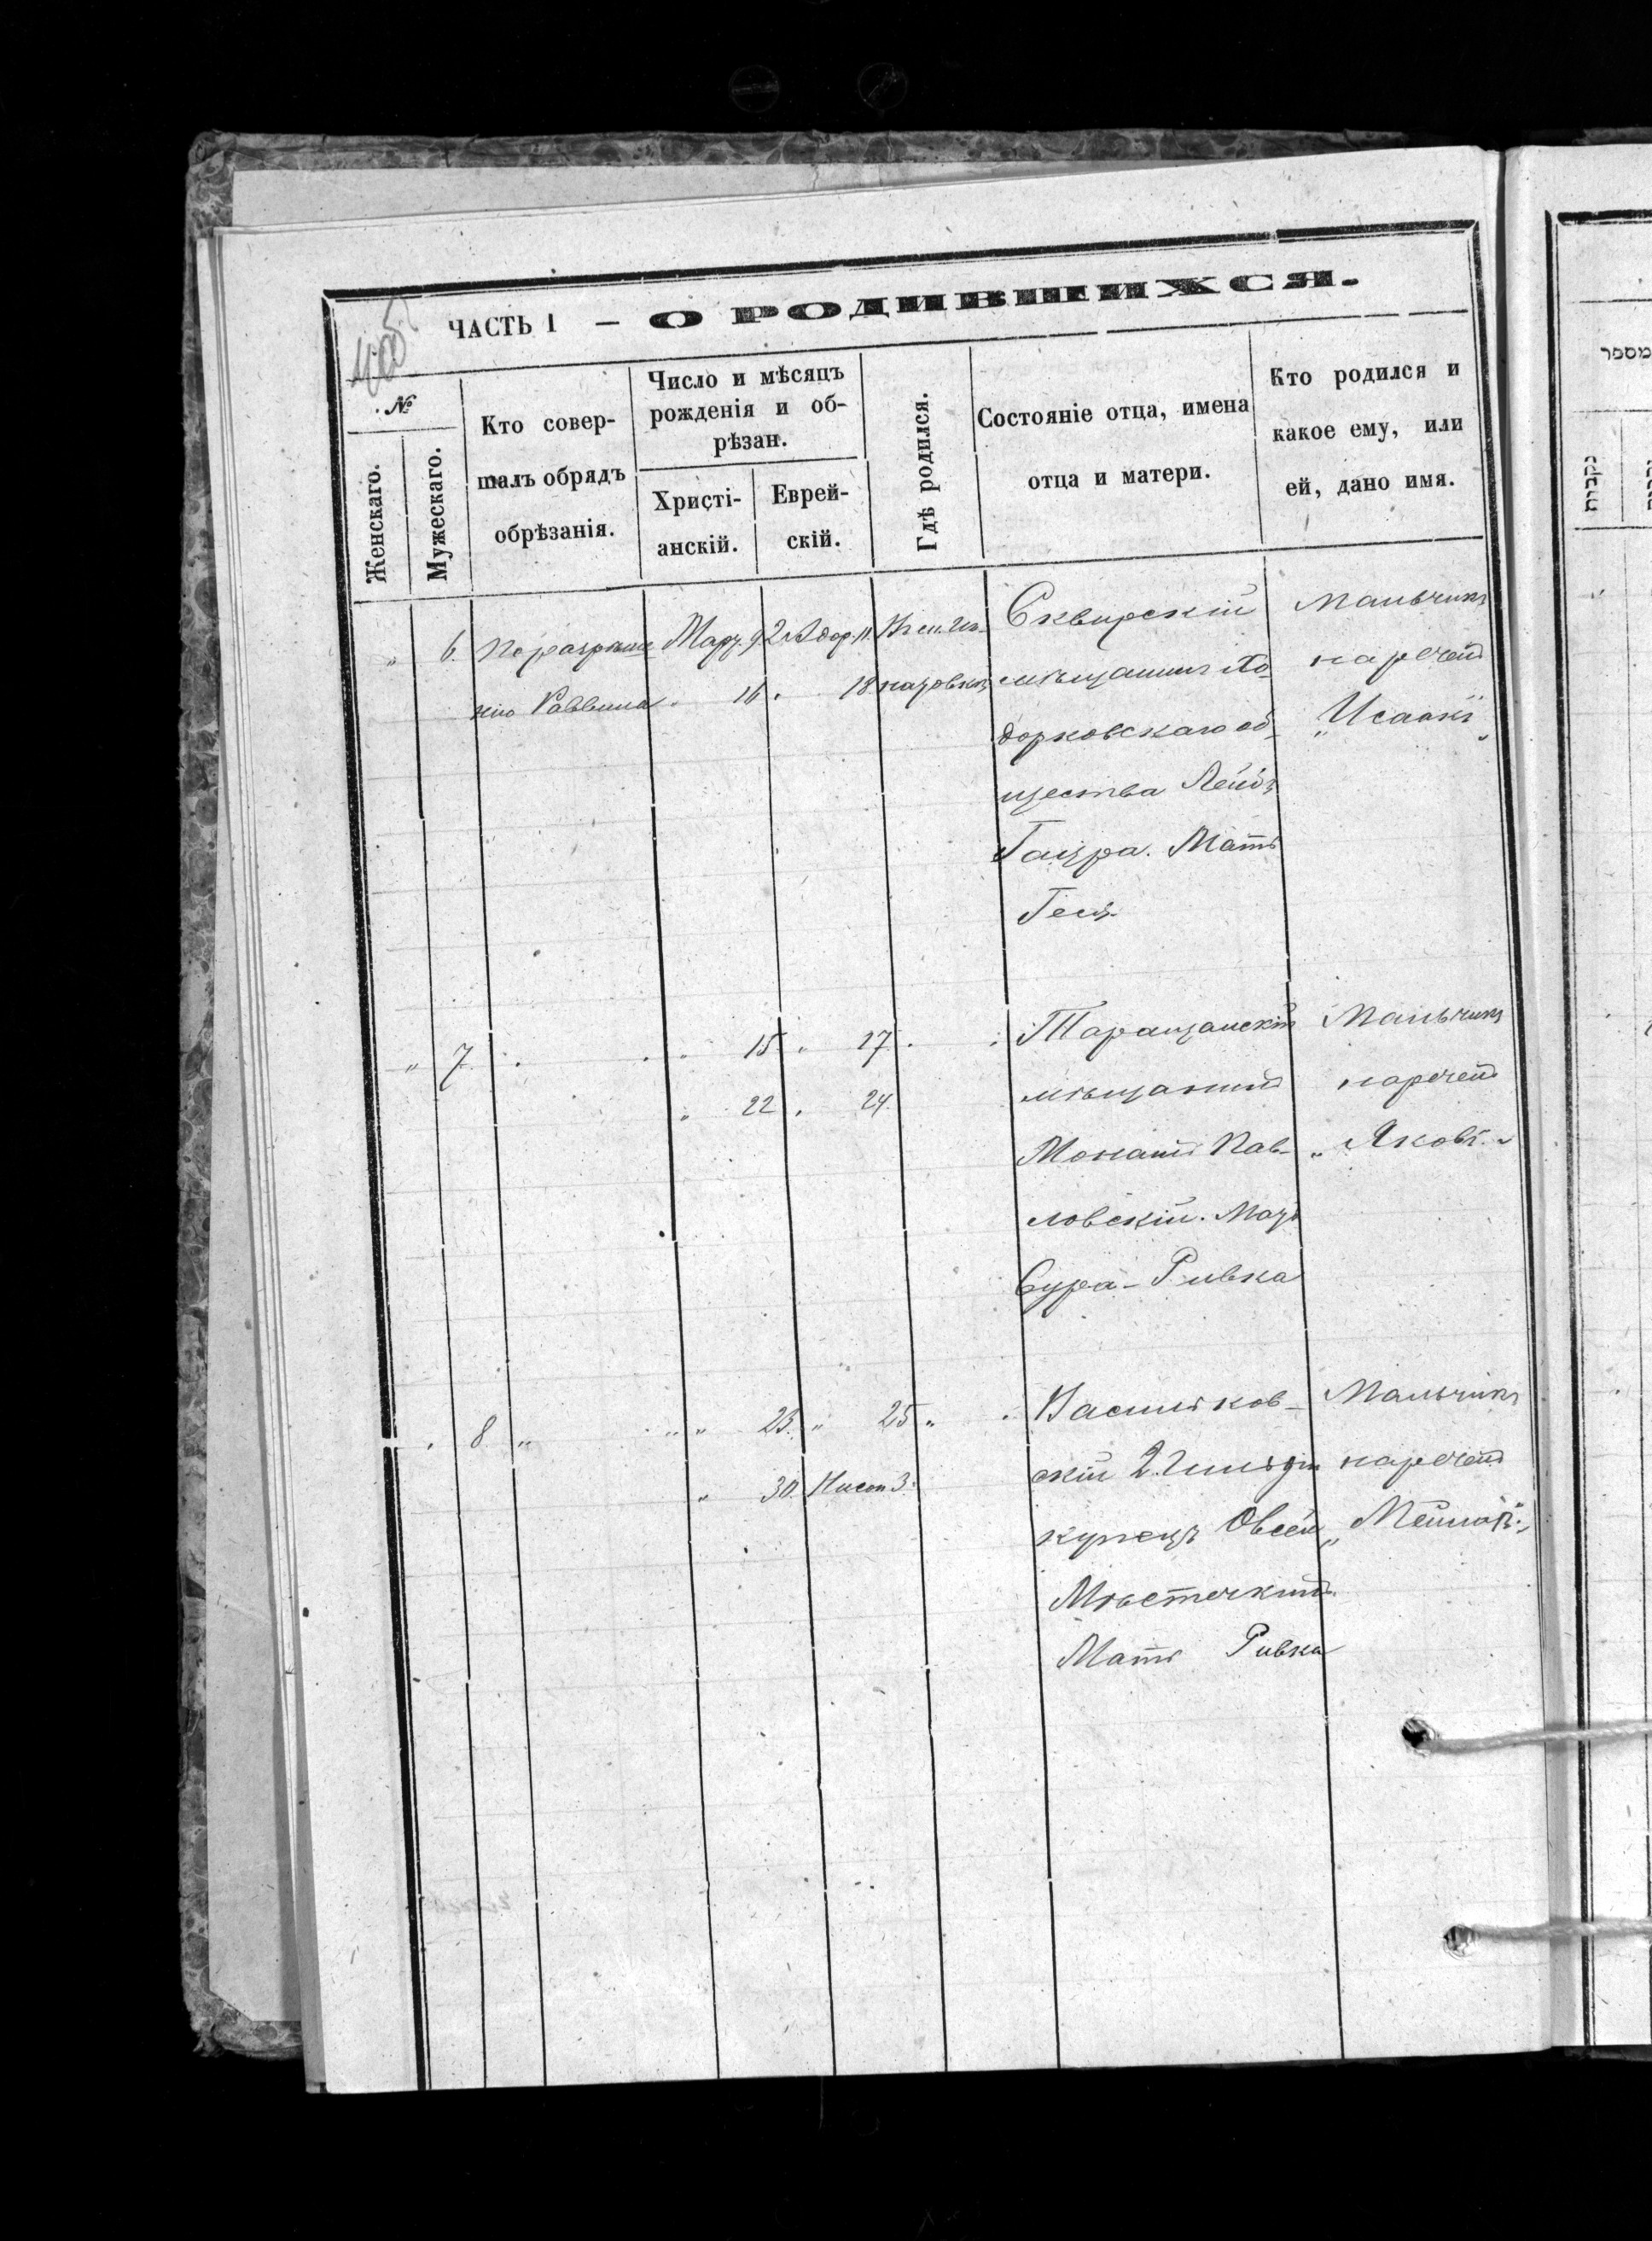 ЧАСТЬ I — О РОДИВШИХСЯ.
№
Женскаго.
Мужескаго.
Кто совер-
шалъ обрядъ
обрѣзанія.
Число и мѣсяцъ
рожденія и об-
рѣзан.
Христі-
анскій.
Еврей-
скій.
Гдѣ родился.
Состояніе отца, имена
отца и матери.
Кто родился и
какое ему, или
ей, дано имя.
„ 6. По разрѣше
нію Раввина
Мар. 9. 2 Адар. 11.
„ 16. „ 18
Сквирскій
мѣщанинъ Хо
дорковскаго об
щества Лейбъ
Мать
Геся.
Мальчикъ
нареченъ
„Исаакъ„
„ 7. „ 15. „ 17.
„ 22 „ 24.
Таращанскій
мѣщанинъ
Пав-
ловскій. Мать
Сура-Ривка
Мальчикъ
нареченъ
„Яковъ.„
„ 8 „ „ 23. „ 25 „
„ 30. Нисон 3.
Васильков-
скій 2. гильдіи
купецъ Овсей
Мѣстечкинъ.
Мать Ривка
Мальчикъ
нареченъ
מספר
נקבות